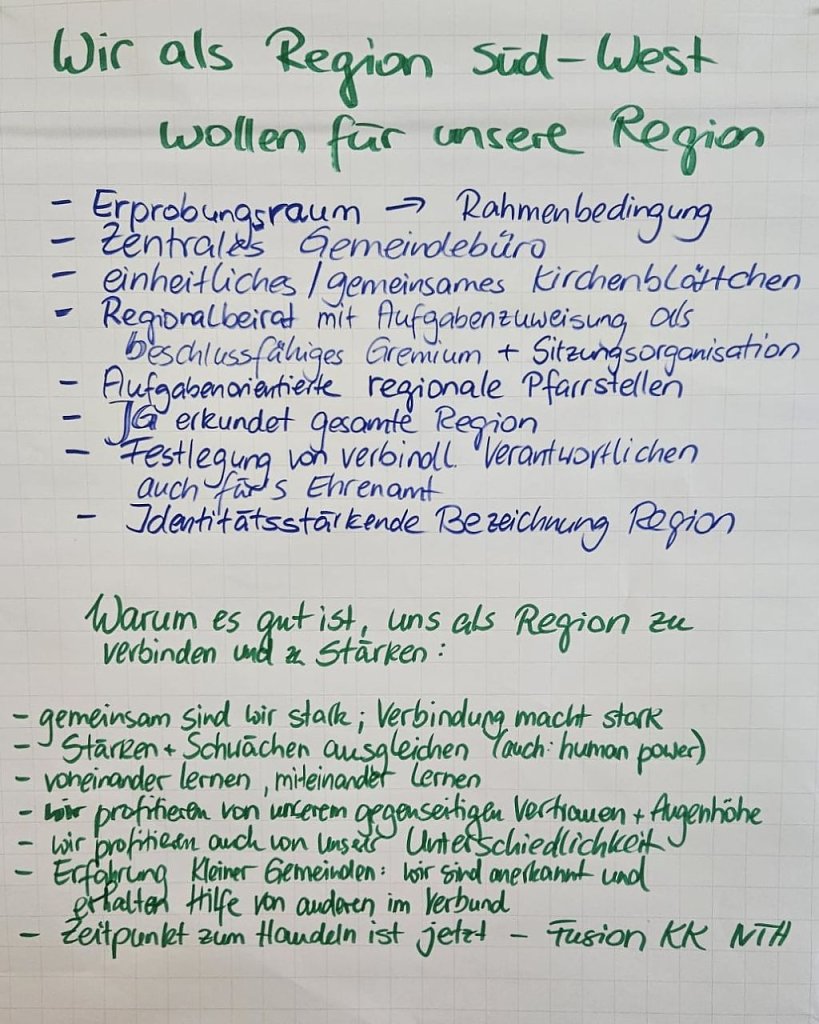 Wir als Region Süd-West
wollen für unsere Region
- Erprobungsraum → Rahmenbedingung
- Zentrales Gemeindebüro
- einheitliches / gemeinsames Kirchenblättchen
- Regionalbeirat mit Aufgabenzuweisung als
beschlussfähiges Gremium + Sitzungsorganisation
- Aufgabenorientierte regionale Pfarrstellen
- JG erkundet gesamte Region
- Festlegung von verbindl. Verantwortlichen
auch für's Ehrenamt
- Identitätsstärkende Bezeichnung Region
Warum es gut ist, uns als Region zu
verbinden und zu Stärken:
- gemeinsam sind wir stark; Verbindung macht stark
- Stärken + Schwächen ausgleichen (auch: human power)
- voneinander lernen, miteinander lernen
- wir profitieren von unserem gegenseitigen Vertrauen + Augenhöhe
- wir profitieren auch von unserer Unterschiedlichkeit
- Erfahrung kleiner Gemeinden: wir sind anerkannt und
erhalten Hilfe von anderen im Verbund
- Zeitpunkt zum Handeln ist jetzt - Fusion KK NTH